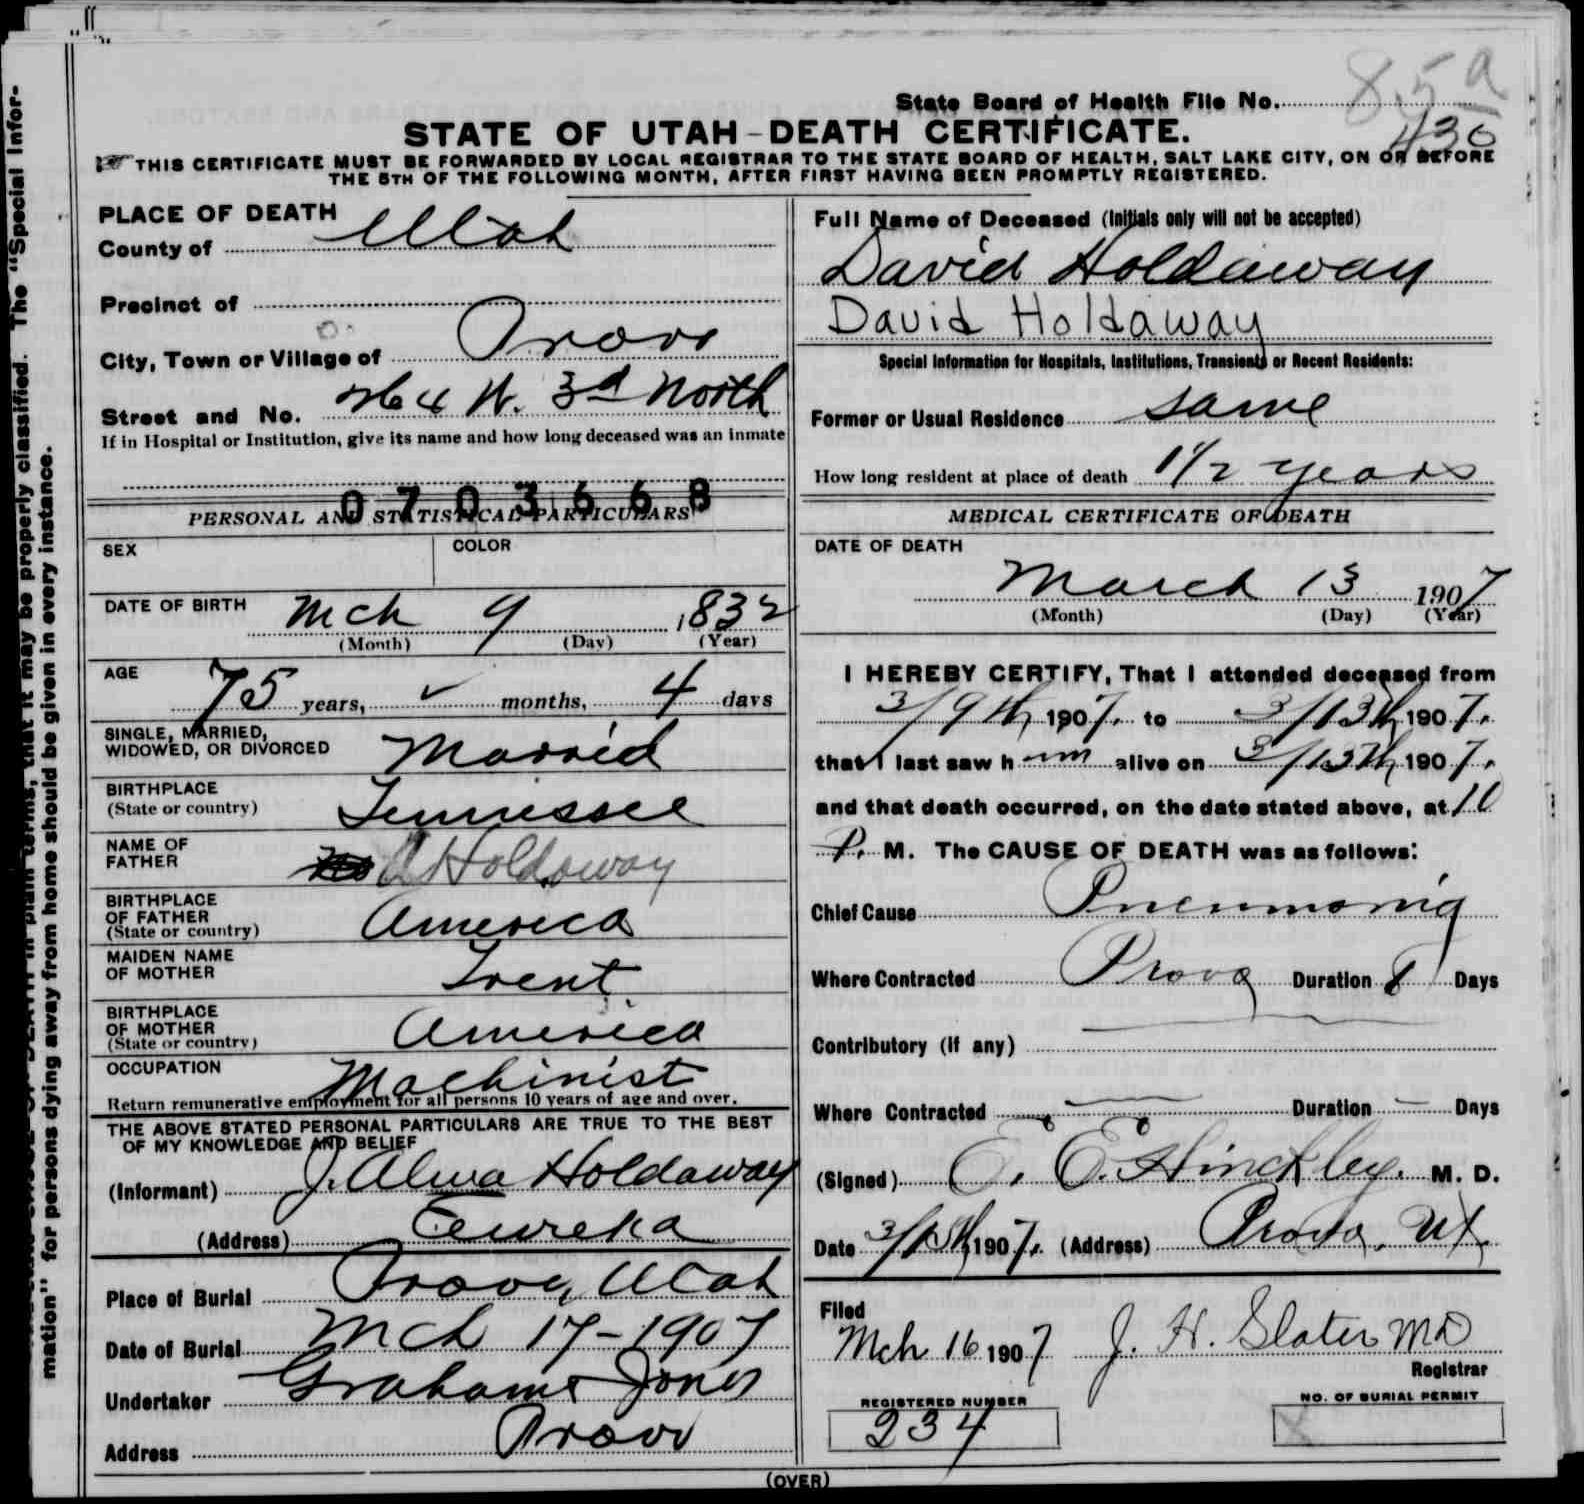 mation" for persons dying away from home should be given in every instance.
in plain terms, that it may be properly classified. The "Special Infor-
85a
State Board of Health File No.
430
STATE OF UTAH-DEATH CERTIFICATE.
THIS CERTIFICATE MUST BE FORWARDED BY LOCAL REGISTRAR TO THE STATE BOARD OF HEALTH, SALT LAKE CITY, ON OR BEFORE
THE 5TH OF THE FOLLOWING MONTH, AFTER FIRST HAVING BEEN PROMPTLY REGISTERED.
PLACE OF DEATH
County of Utah
Precinct of
City, Town or Village of Provo
Street and No. 264 W. 3rd North
If in Hospital or Institution, give its name and how long deceased was an inmate
0703668
PERSONAL AND STATISTICAL PARTICULARS
SEX COLOR
DATE OF BIRTH Mch 9 1832
(Month) (Day) (Year)
AGE
75 years, months, 4 days
SINGLE, MARRIED,
WIDOWED, OR DIVORCED Married
BIRTHPLACE
(State or country) Tennessee
NAME OF
FATHER Holdaway
BIRTHPLACE
OF FATHER
(State or country) America
MAIDEN NAME
OF MOTHER Trent
BIRTHPLACE
OF MOTHER
(State or country) America
OCCUPATION Machinist
Return remunerative employment for all persons 10 years of age and over.
THE ABOVE STATED PERSONAL PARTICULARS ARE TRUE TO THE BEST
OF MY KNOWLEDGE AND BELIEF
(Informant) J. Alma Holdaway
(Address) Eureka
Place of Burial Provo, Utah
Date of Burial Mch 17-1907
Undertaker Graham & Jones
Address Provo
Full Name of Deceased (Initials only will not be accepted)
David Holdaway
David Holdaway
Special Information for Hospitals, Institutions, Transients or Recent Residents:
Former or Usual Residence same
How long resident at place of death 1 1/2 years
MEDICAL CERTIFICATE OF DEATH
DATE OF DEATH
March 13 1907
(Month) (Day) (Year)
I HEREBY CERTIFY, That I attended deceased from
3/9th 1907. to 3/13th 1907.
that I last saw him alive on 3/13th 1907.
and that death occurred, on the date stated above, at 10
P. M. The CAUSE OF DEATH was as follows:
Chief Cause Pneumonia
Where Contracted Provo Duration Days
Contributory (if any)
Where Contracted Duration Days
(Signed) E. E. Hinckley. M. D.
Date 3/15th 1907. (Address) Provo, Ut
Filed
Mch 16 1907 J. H. Slater MD
Registrar
REGISTERED NUMBER
234
NO. OF BURIAL PERMIT
(OVER)